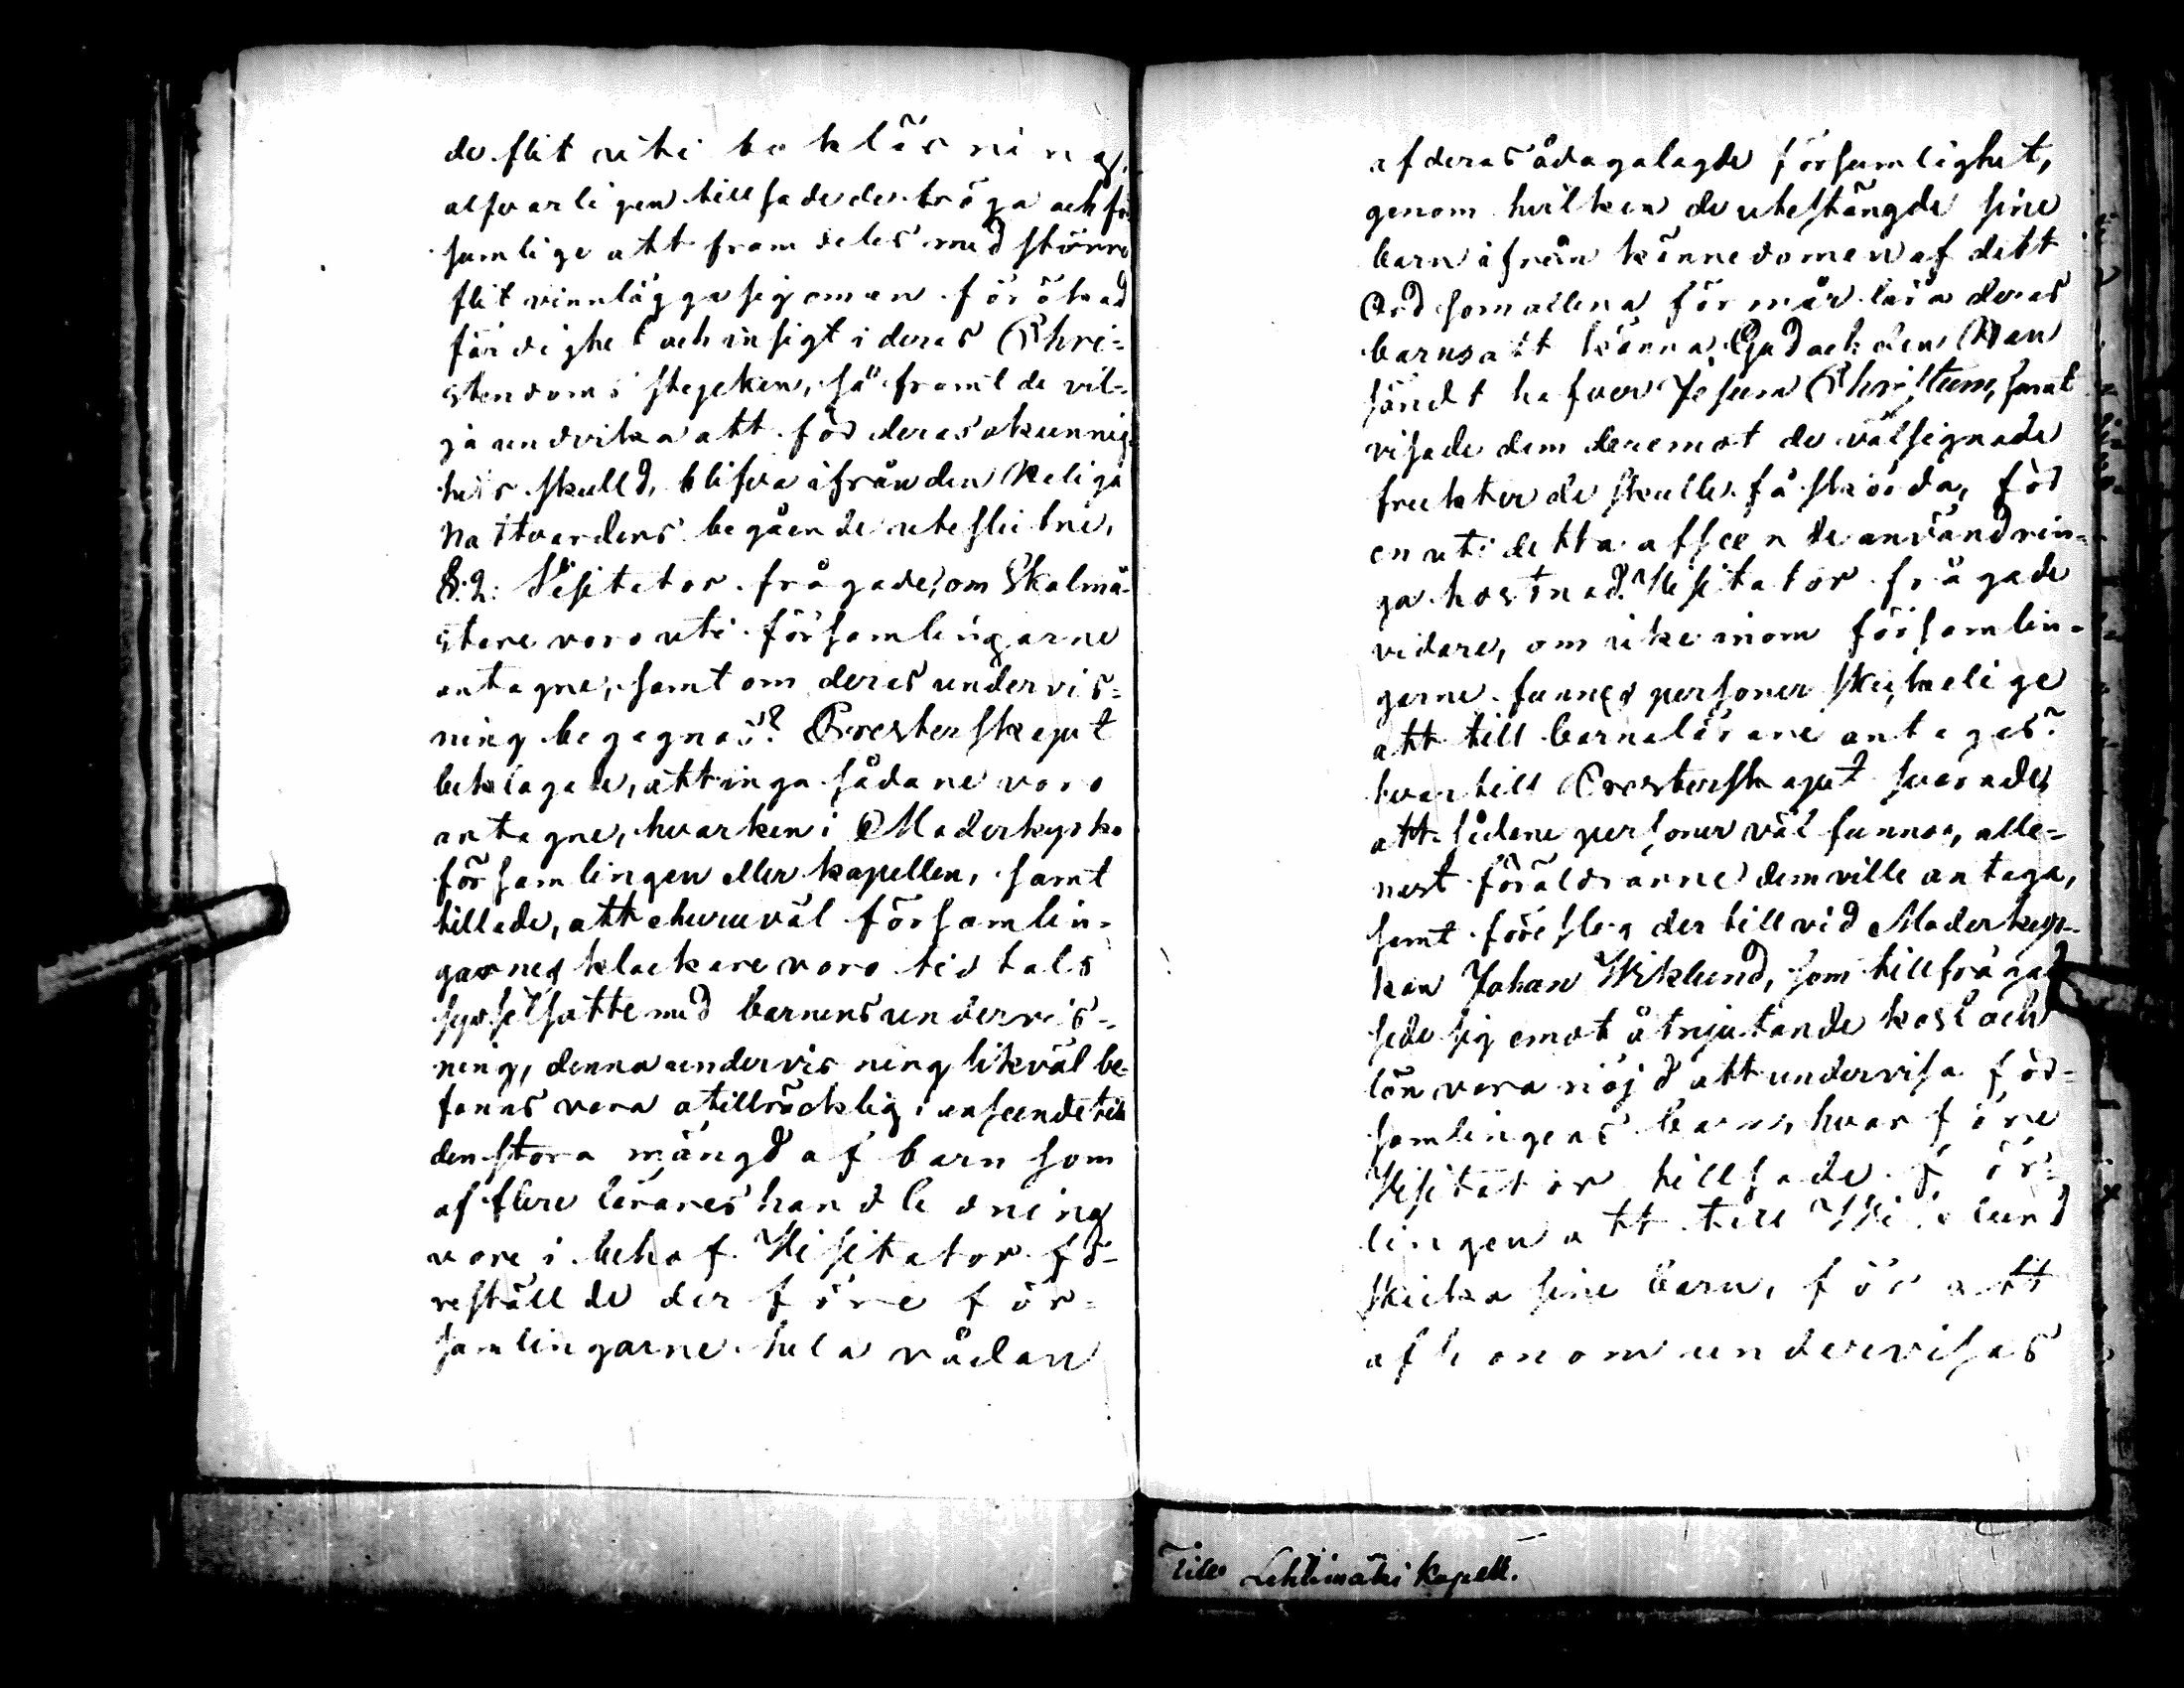 de flit uti bokläsning,
alfvarligen tillsade de tröga och för
sumlige att framdeles med större
flit vinnlägga sig om en förökad
färdighet och insigt i deras Chri=
stendoms stycken, så framt de vil=
ja undvika att för deras okunnig=
hets skulld, blifva ifrån den Heliga
Nattvardens begående uteslutne.
§. 2. Visitator frågade, om Skolmä-
stare voro uti församlingarne
antagne, samt om deras undervis=
ning begagnas? Presterskapet
beklagade, att inga sådane voro
antagne, hvarken i Moderkyrko
församlingen eller kapellen, samt
tillade, att ehuruväl församlin-
garnes klockare voro tidtals
sysselsatte med barnens undervis=
ning, denna undervisning likväl be-
fanns vara otillräcklig i anseende till
den stora mängd af barn som
af flere lärares handledning
vore i behof. Visitator fö-
reställde der före för=
samlingarne hela vådan
af deras ådagalagde försumlighet,
genom hvilken de utestängde sine
barn ifrån kännedomen af dett
Ord som allena förmår lära deras
barns att känna Gud och den Han
sändt hafver Jesum Christum, samt
visade dem deremot de välsignade
frukter de skulle få skörda, för
en uti detta afseende använd rin-
ga kostnad. Visitator frågade
vidare, om icke inom församlin-
garne funnes personer skickelige
att till barnalärare antagas?
hvartill Presterskapet svarade,
att sådane personer väl funnos, alle=
nast föräldrarne dem ville antaga,
samt föreslog der till vid Moderkyr-
kan Johan Wiklund, som tillfrågad
sade sig emot åtnjutande kost och
lön vara nöjd att undervisa för=
samlingens barn, hvarföre
Visitator tillsade för=
lingen att till Wiklund
skicka sine barn, för att
af honom undervisas
Till Lehtimäki Kapell.